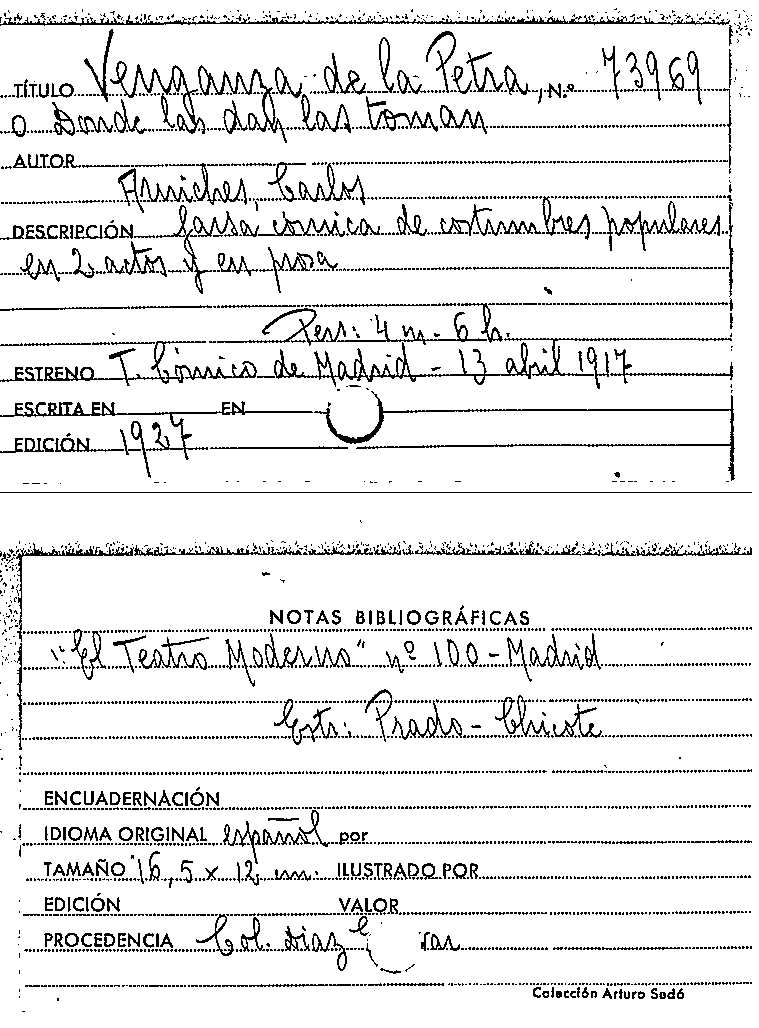 TÍTULO Venganza de la Petra, N.º 73969
o Donde las dan las toman
AUTOR
Arniches, Carlos
DESCRIPCIÓN farsa cómica de costumbres populares
en 2 actos y en prosa
Pers: 4 m. - 6 h.
ESTRENO T. Cómico de Madrid - 13 abril 1917
ESCRITA EN EN
EDICIÓN 1927
NOTAS BIBLIOGRÁFICAS
"El Teatro Moderno" nº 100 - Madrid
Estr: Prado - Chicote
ENCUADERNACIÓN
IDIOMA ORIGINAL español por
TAMAÑO 16,5 x 12 cm. ILUSTRADO POR
EDICIÓN VALOR
PROCEDENCIA Col. Diaz
Colección Arturo Sedó